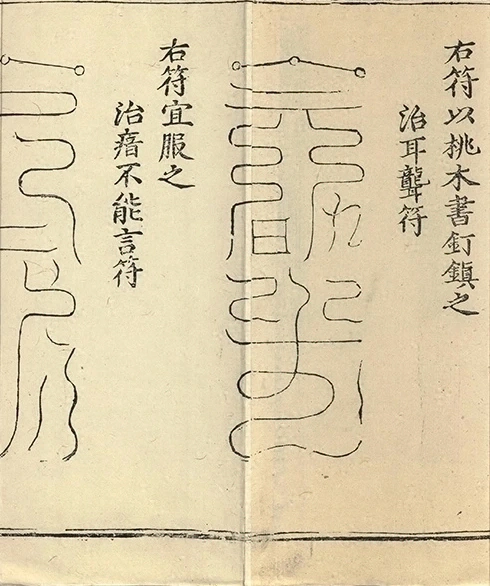 右符以桃木書釘鎮之
治耳聾符
右符宜服之
治瘖不能言符